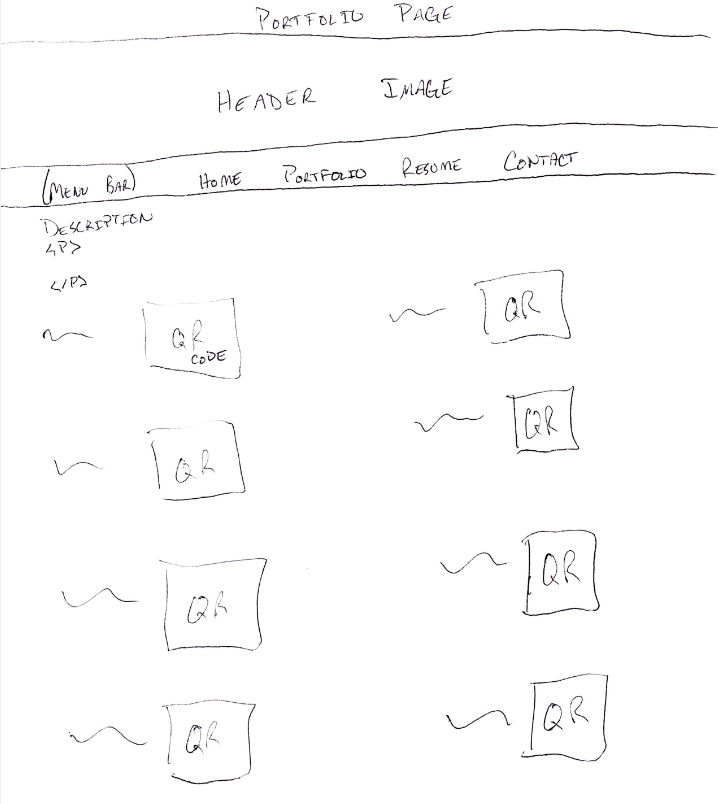 PORTFOLIO PAGE
HEADER IMAGE
(MENU BAR) HOME PORTFOLIO RESUME CONTACT
DESCRIPTION
<P>
</P>
QR CODE
QR
QR
QR
QR
QR
QR
QR